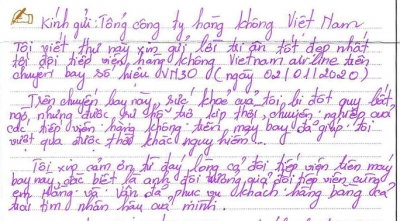 Kính gửi: Tổng công ty hàng không Việt Nam
Tôi viết thư này xin gửi lời tri ân tốt đẹp nhất
tới đội tiếp viên hàng không Vietnam airline trên
chuyến bay số hiệu VN30 (ngày 02/01/2020)
Trên chuyến bay này, sức khỏe của tôi bị đột quỵ bất
ngờ, nhưng được sự hỗ trợ kịp thời, chuyên nghiệp của
các tiếp viên hàng không trên máy bay đã giúp tôi
vượt qua được thời khắc nguy hiểm...
Tôi xin cảm ơn từ đáy lòng cả đội tiếp viên trên máy
bay này, đặc biệt là anh đội trưởng của đội tiếp viên cùng
em Hằng và Vân đã phục vụ khách hàng bằng cả
trái tim nhân hậu của mình..